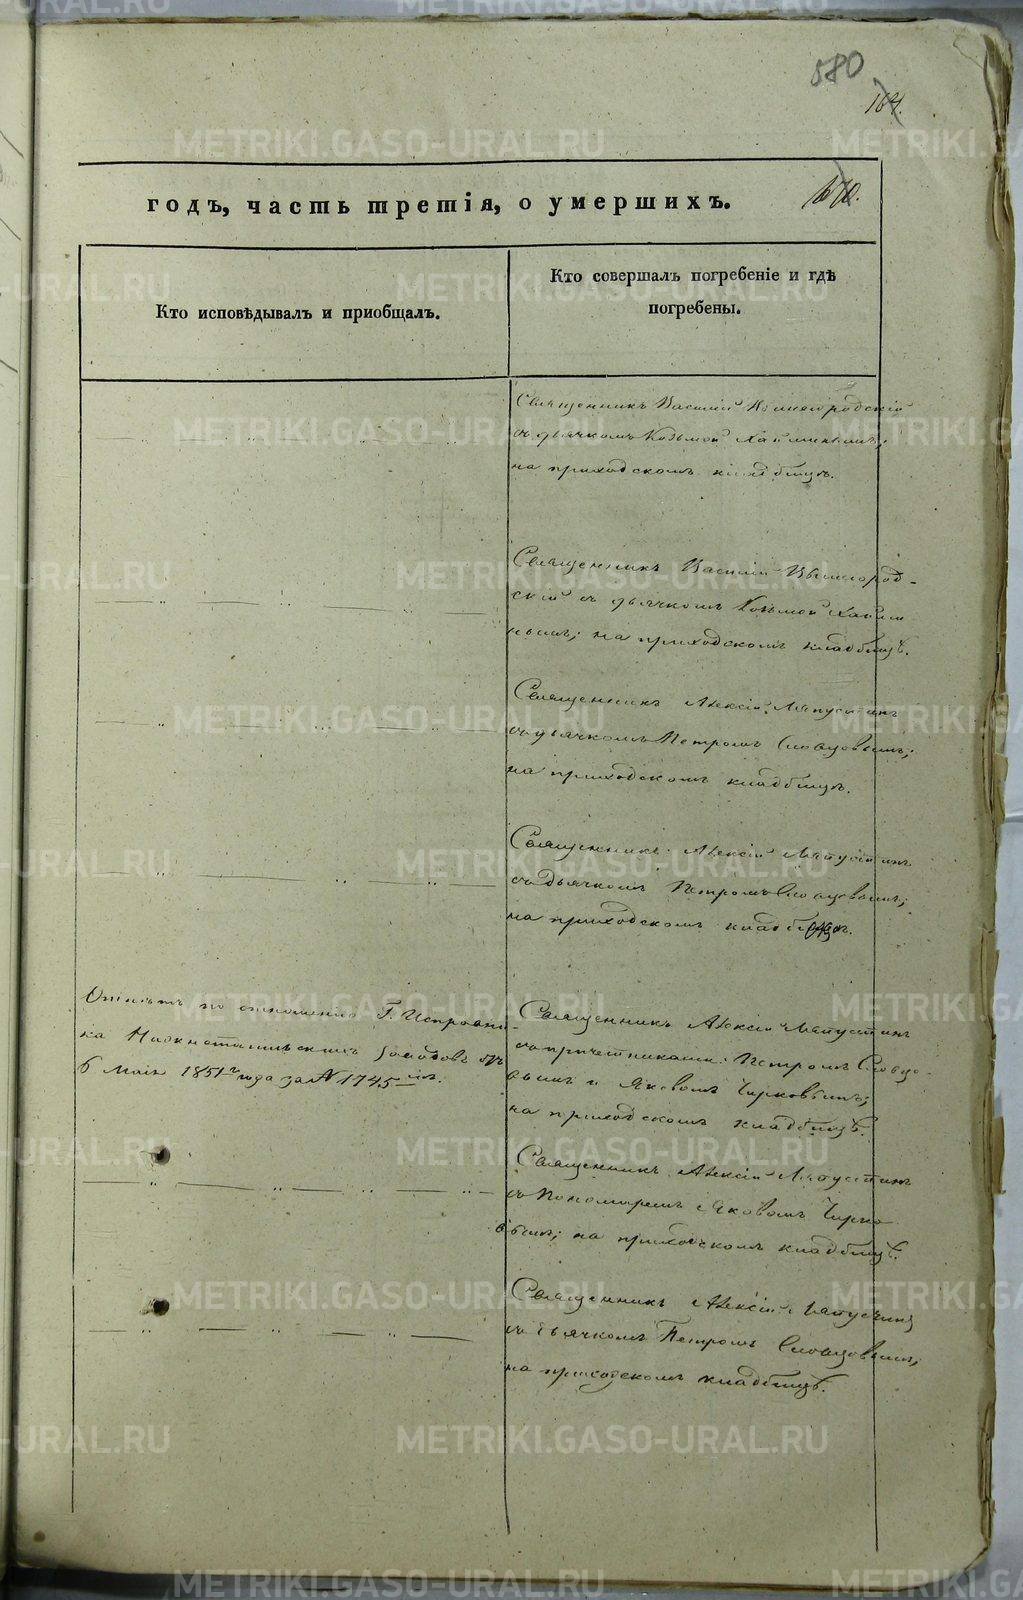 580
164.
годъ, часть третія, о умершихъ.
670.
Кто исповѣдывалъ и приобщалъ.
Кто совершалъ погребеніе и гдѣ
погребены.
Священникъ Василій Вышегородскій
съ дьячкомъ Козьмой
на приходскомъ кладбищѣ.
Священникъ Василій Вышегород-
скій съ дьячкомъ Козьмой
на приходскомъ кладбищѣ.
Священникъ Алексій Ляпустинъ
съ дьячкомъ Петромъ Словцовымъ;
на приходскомъ кладбищѣ.
Священникъ Алексій Ляпустинъ
съ дьячкомъ Петромъ Словцовымъ;
на приходскомъ кладбищѣ.
Отпѣтъ по отношенію Г. Исправни-
ка заводовъ отъ
6 Маія 1851го года за № 1745мъ.
Священникъ Алексій Ляпустинъ
съ причетниками: Петромъ Словцо-
вымъ и Яковомъ Чирковымъ;
на приходскомъ кладбищѣ.
Священникъ Алексій Ляпустинъ
съ Пономаремъ Яковомъ Чирко-
вымъ; на приходскомъ кладбищѣ.
Священникъ Алексій Ляпустинъ
съ дьячкомъ Петромъ Словцовымъ;
на приходскомъ кладбищѣ.
METRIKI.GASO-URAL.RU